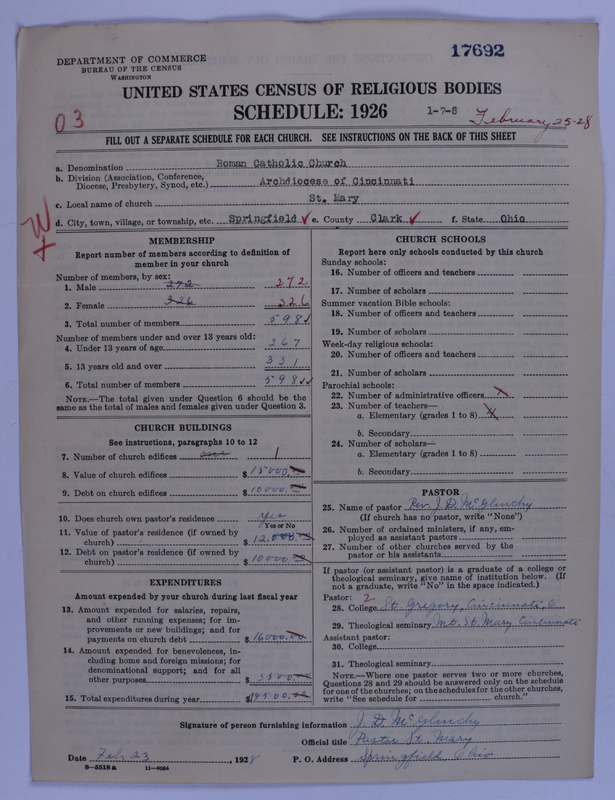 DEPARTMENT OF COMMERCE
BUREAU OF THE CENSUS
WASHINGTON
17692
UNITED STATES CENSUS OF RELIGIOUS BODIES
SCHEDULE: 1926
1-7-8
February 25-28
03
FILL OUT A SEPARATE SCHEDULE FOR EACH CHURCH. SEE INSTRUCTIONS ON THE BACK OF THIS SHEET
a. Denomination Roman Catholic Church
b. Division (Association, Conference, Diocese, Presbytery, Synod, etc.) Archdiocese of Cincinnati
c. Local name of church St. Mary
d. City, town, village, or township, etc. Springfield ✓ e. County Clark ✓ f. State Ohio
MEMBERSHIP
Report number of members according to definition of
member in your church
Number of members, by sex:
1. Male 272 272
2. Female 326 326
3. Total number of members 598
Number of members under and over 13 years old:
4. Under 13 years of age 267
5. 13 years old and over 331
6. Total number of members 598
NOTE.—The total given under Question 6 should be
same as the total of males and females given under Question 3.
CHURCH BUILDINGS
See instructions, paragraphs 10 to 12
7. Number of church edifices one 1
8. Value of church edifices $15000
9. Debt on church edifices $10000
10. Does church own pastor's residence yes
Yes or No
11. Value of pastor's residence (if owned by
church) $12,000
12. Debt on pastor's residence (if owned by
church) $10000
EXPENDITURES
Amount expended by your church during last fiscal year
13. Amount expended for salaries, repairs,
and other running expenses; for im-
provements or new buildings; and for
payments on church debt $16000.00
14. Amount expended for benevolences, in-
cluding home and foreign missions; for
denominational support; and for all
other purposes $3500
15. Total expenditures during year $19500.00
CHURCH SCHOOLS
Report here only schools conducted by this church
Sunday schools:
16. Number of officers and teachers
17. Number of scholars
Summer vacation Bible schools:
18. Number of officers and teachers
19. Number of scholars
Week-day religious schools:
20. Number of officers and teachers
21. Number of scholars
Parochial schools:
22. Number of administrative officers X
23. Number of teachers—
a. Elementary (grades 1 to 8)
b. Secondary
24. Number of scholars—
a. Elementary (grades 1 to 8)
b. Secondary
PASTOR
25. Name of pastor Rev. J. D. McGlinchy
(If church has no pastor, write "None")
26. Number of ordained ministers, if any, em-
ployed as assistant pastors
27. Number of other churches served by the
pastor or his assistants
If pastor (or assistant pastor) is a graduate of a college or
theological seminary, give name of institution below. (If
not graduate, write "No" in the space indicated.)
Pastor: 2
28. College St. Gregory, Cincinnati, O
29. Theological seminary Mt. St. Mary, Cincinnati
Assistant pastor:
30. College
31. Theological seminary
NOTE.—Where one pastor serves two or more churches,
Questions 28 and 29 should be answered only on the schedule
for one of the churches; on the schedules for the other churches,
write "See schedule for church."
Signature of person furnishing information J. D. McGlinchy
Official title Pastor St. Mary
Date Feb. 23, 1928 P. O. Address Springfield Ohio
8—5518 a 11—9084